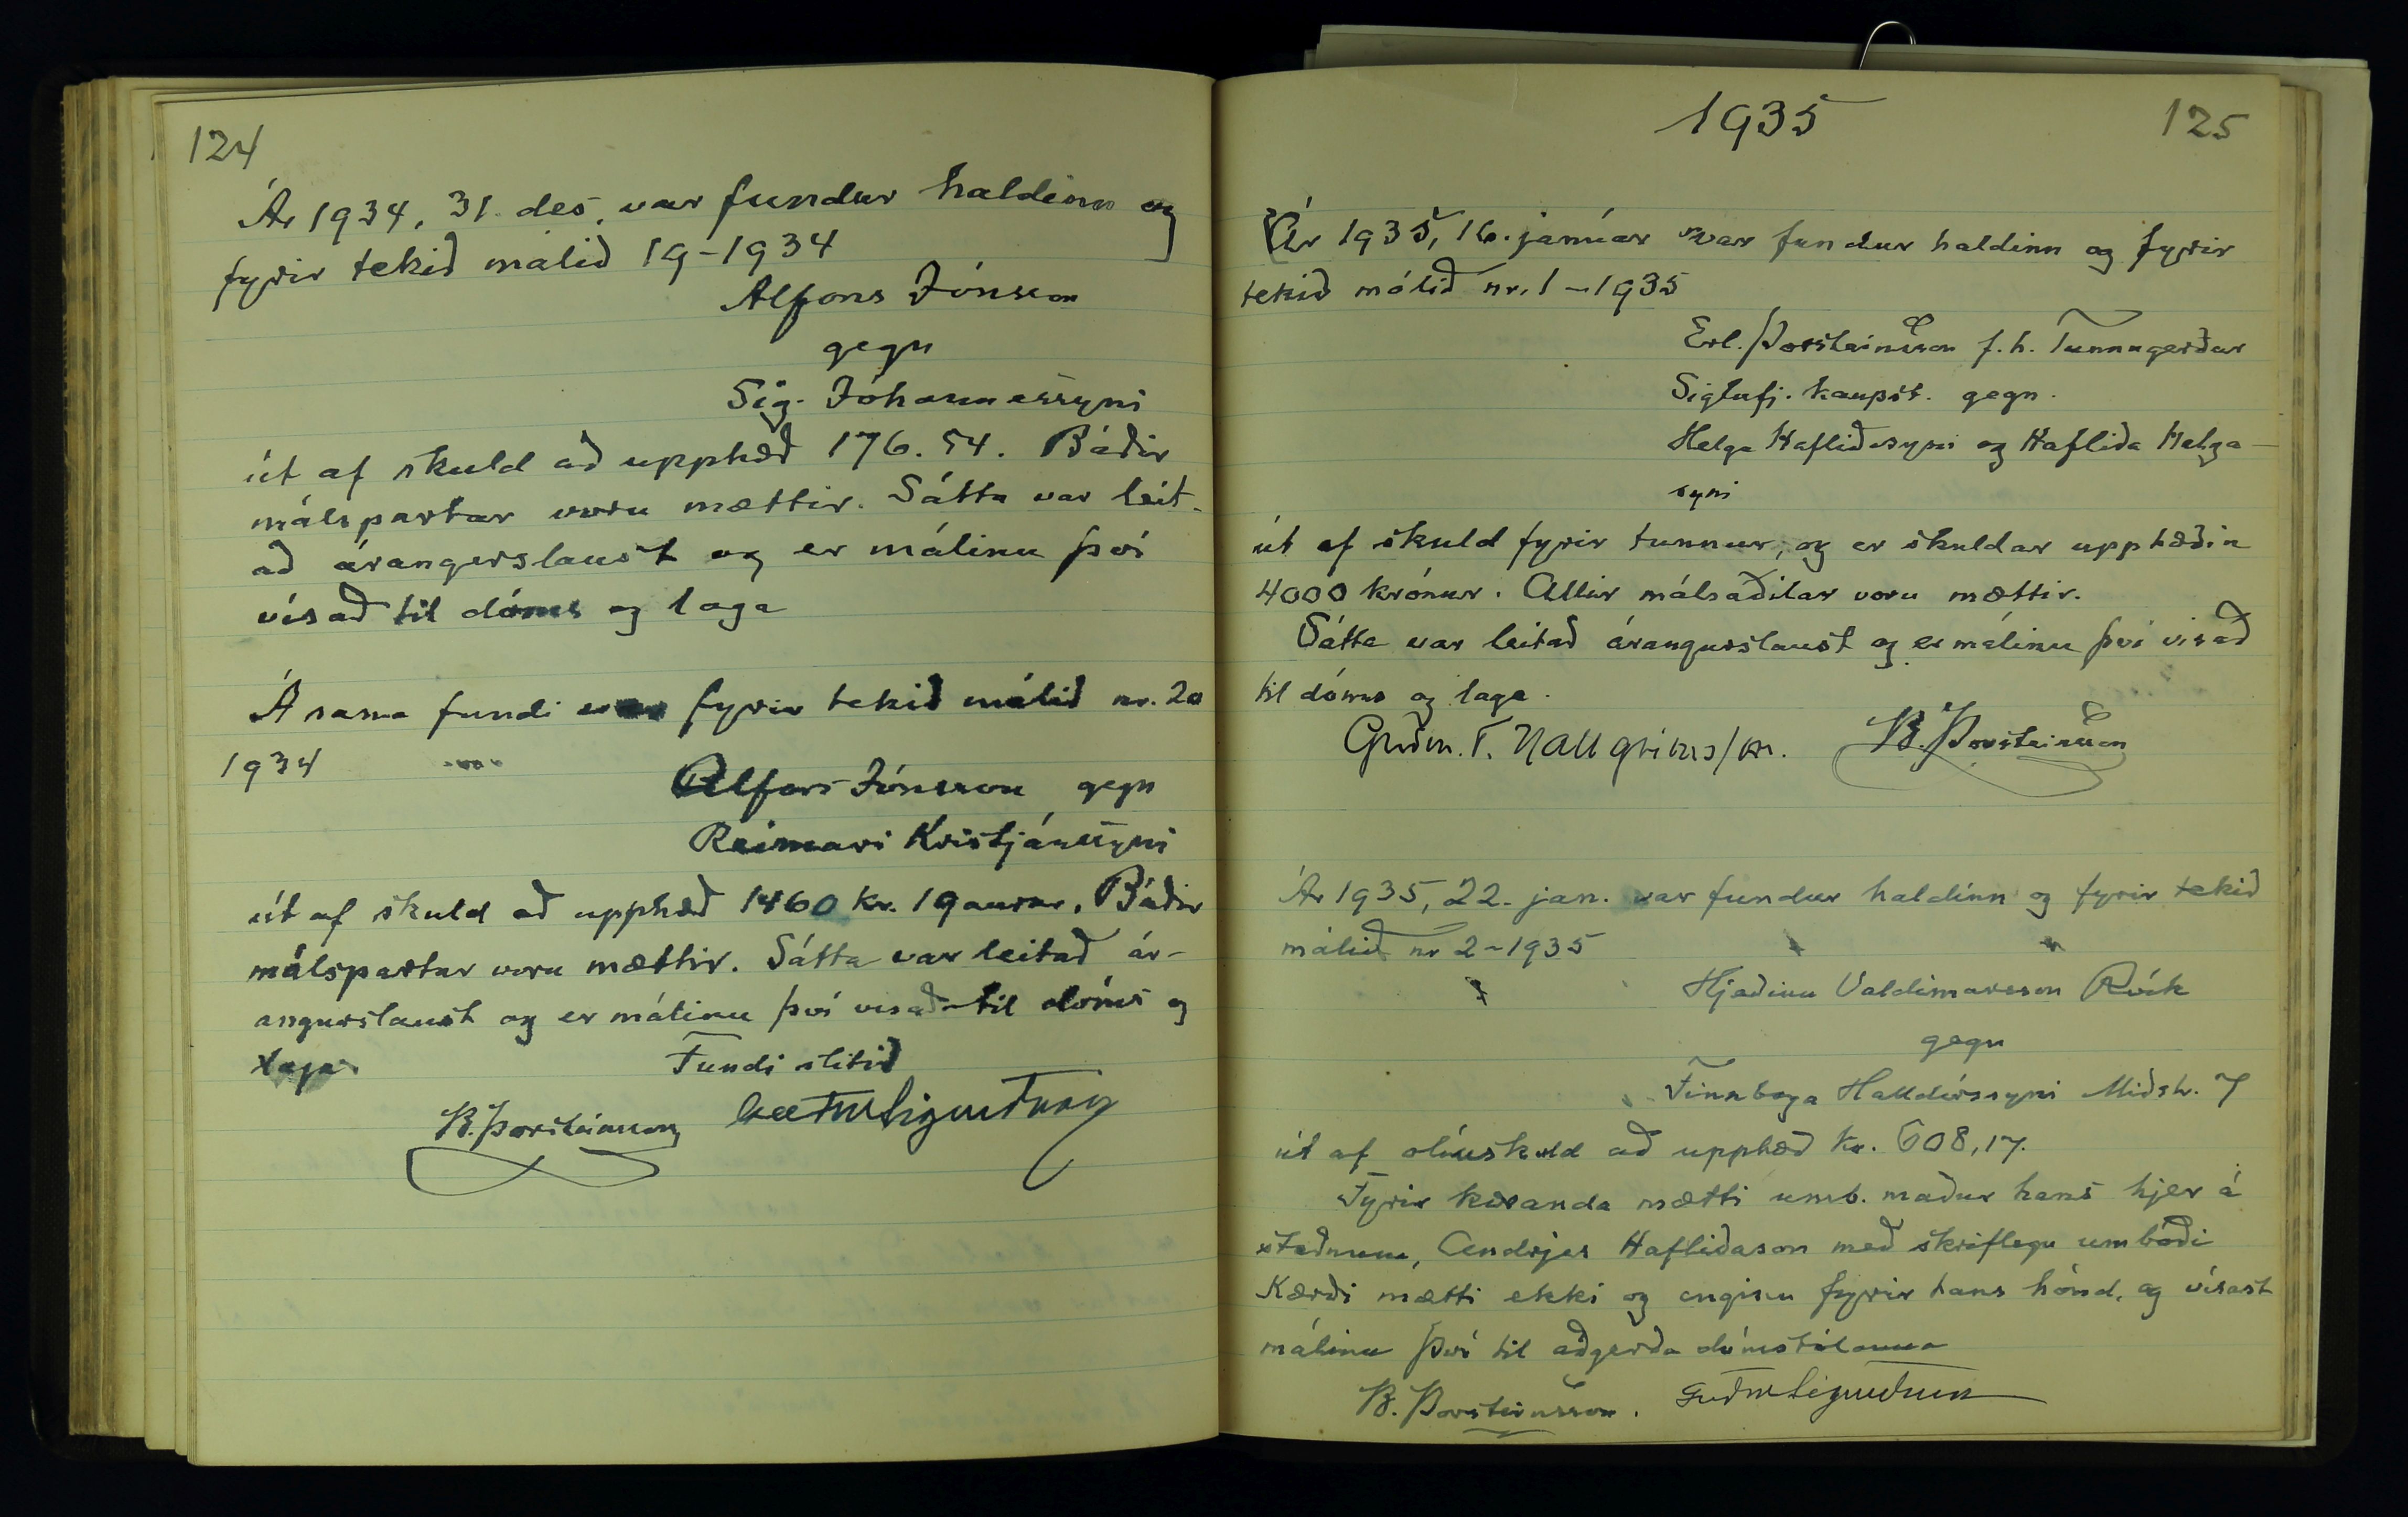 124
Ár 1934, 31. des. var fundur haldinn og
fyrir tekið málið 19-1934
Alfons Jónsson
gegn
Sig. Jóhannessyni
út af skuld að upphæð 176.54. Báðir
málspartar voru mættir. Sátta var leit-
að árangerslaust og er málinu því
vísað til dóms og laga
Á sama fundi var fyrir tekið málið nr. 20
1934
Alfons Jónsson gegn
Reimari Kristjánssyni
út af skuld að upphæð 1460 kr. 19 aurar. Báðir
málspartar voru mættir. Sátta var leitað ár-
angurslaust og er málinu því vísað til dóms og
laga
Fundi slitið
B. Þorsteinsson Guðm Sigurðsson
1935
125
Ár 1935, 16. janúar var fundur haldinn og fyrir
tekið málið nr. 1-1935
Erl. Þorsteinsson f.h. Tunnugerðar
Siglufj. kaupst. gegn.
Helga Hafliðasyni og Hafliða Helga-
syni
út af skuld fyrir tunnur, og er skuldar upphæðin
4000 krónur. Allir málsaðilar voru mættir.
Sátta var leitað árangurslaust og er málinu því visað
til dóms og laga.
Guðm. T. Hallgrímss/on. B. Þorsteinsson
Ár 1935, 22. jan. var fundur haldinn og fyrir tekið
málið nr 2-1935
Hjeðinn Valdimarsson Rvík
gegn
Finnboga Halldórssyni Miðstr. 7
út af olíuskuld að upphæð kr. 608,17.
Fyrir kæranda mætti umb. maður hans hjer á
staðnum, Andrjes Hafliðason með skriflegu umboði
Kærði mætti ekki og enginn fyrir hans hönd, og vísast
málinu því til aðgerða dómstólanna
B. Þorsteinsson. Guðm Sigurðsson